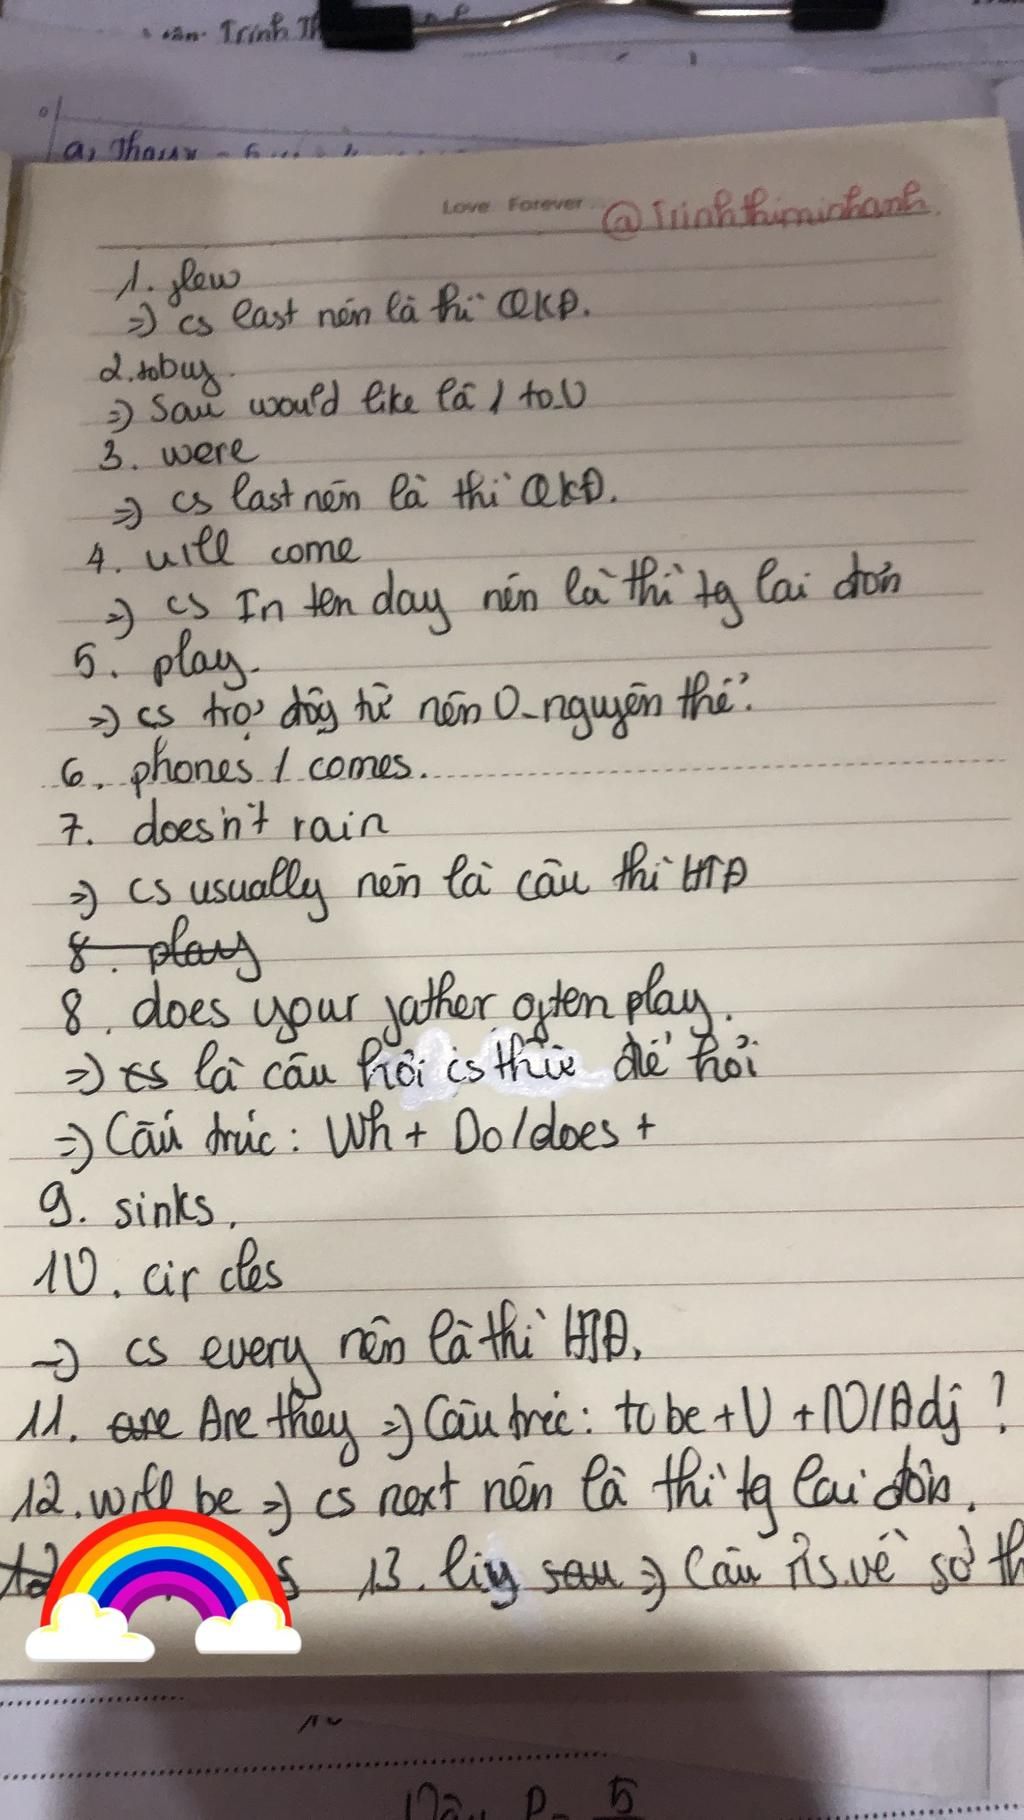 Trinh Th
a, Thaux
Love Forever
@Trinhthiminhanh
1. flew
=) cs last nên là thì QKĐ.
2. to buy.
=) Sau would like là 1 to_V
3. were
=) cs last nên là thì QKĐ.
4. will come
=) cs In ten day nên là thì tg lai đơn
5. play.
=) cs trợ độg từ nên V_nguyên thể.
6. phones / comes.
7. does'n't rain
=) cs usually nên là câu thì HTĐ
8. play
8. does your father often play.
=) cs là câu hỏi cs thức để hỏi
=) Cấu trúc: Wh + Do/does +
9. sinks.
10. cir cles
=) cs every nên là thì HTĐ.
11. are Are they =) Cấu trúc: to be + V + N/Adj ?
12. will be =) cs next nên là thì tg lai đơn.
13. =) Câu ns về sở th
P = 5